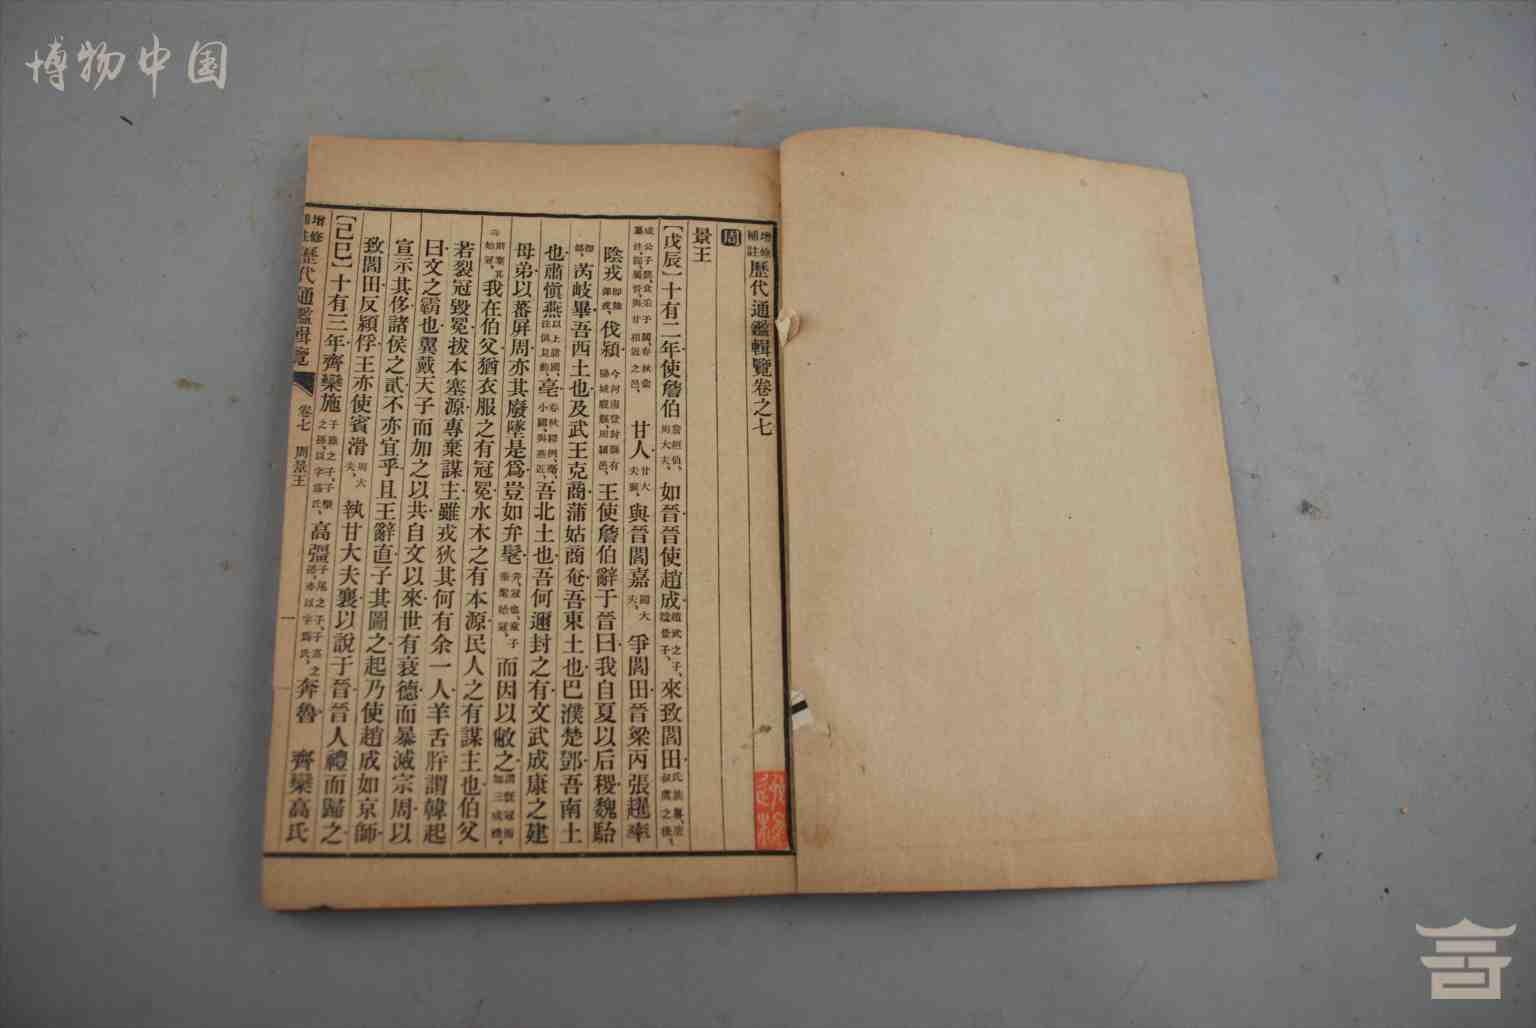 博物中国
增修補註歷代通鑑輯覽卷之七
周
景王
【戊辰】十有二年使詹伯詹桓伯、周大夫、如晉晉使趙成趙武之子、諡景子、來致閻田
成公子懿、食采于閻、春秋彙纂注、閻屬晉、與甘相近之邑、甘人甘大夫襄、與晉閻嘉閻大夫、爭閻田晉梁丙張趯率
陰戎伐潁王使詹伯辭于晉曰我自夏以后稷魏駘
芮岐畢吾西土也及武王克商蒲姑商奄吾東土也巴濮楚鄧吾南土
也肅愼燕亳吾北土也吾何邇封之有文武成康之建
母弟以蕃屏周亦其廢墜是爲豈如弁髦而因以敝之
我在伯父猶衣服之有冠冕水木之有本源民人之有謀主也伯父
若裂冠毀冕拔本塞源專棄謀主雖戎狄其何有余一人羊舌肸謂韓起
曰文之霸也翼戴天子而加之以共自文以來世有衰德而暴滅宗周以
宣示其侈諸侯之貳不亦宜乎且王辭直子其圖之起乃使趙成如京師
致閻田反潁俘王亦使賓滑周大夫、執甘大夫襄以說于晉晉人禮而歸之
【己巳】十有三年齊欒施高彊奔魯 齊欒高氏
增修補註歷代通鑑輯覽 卷七 周景王 一